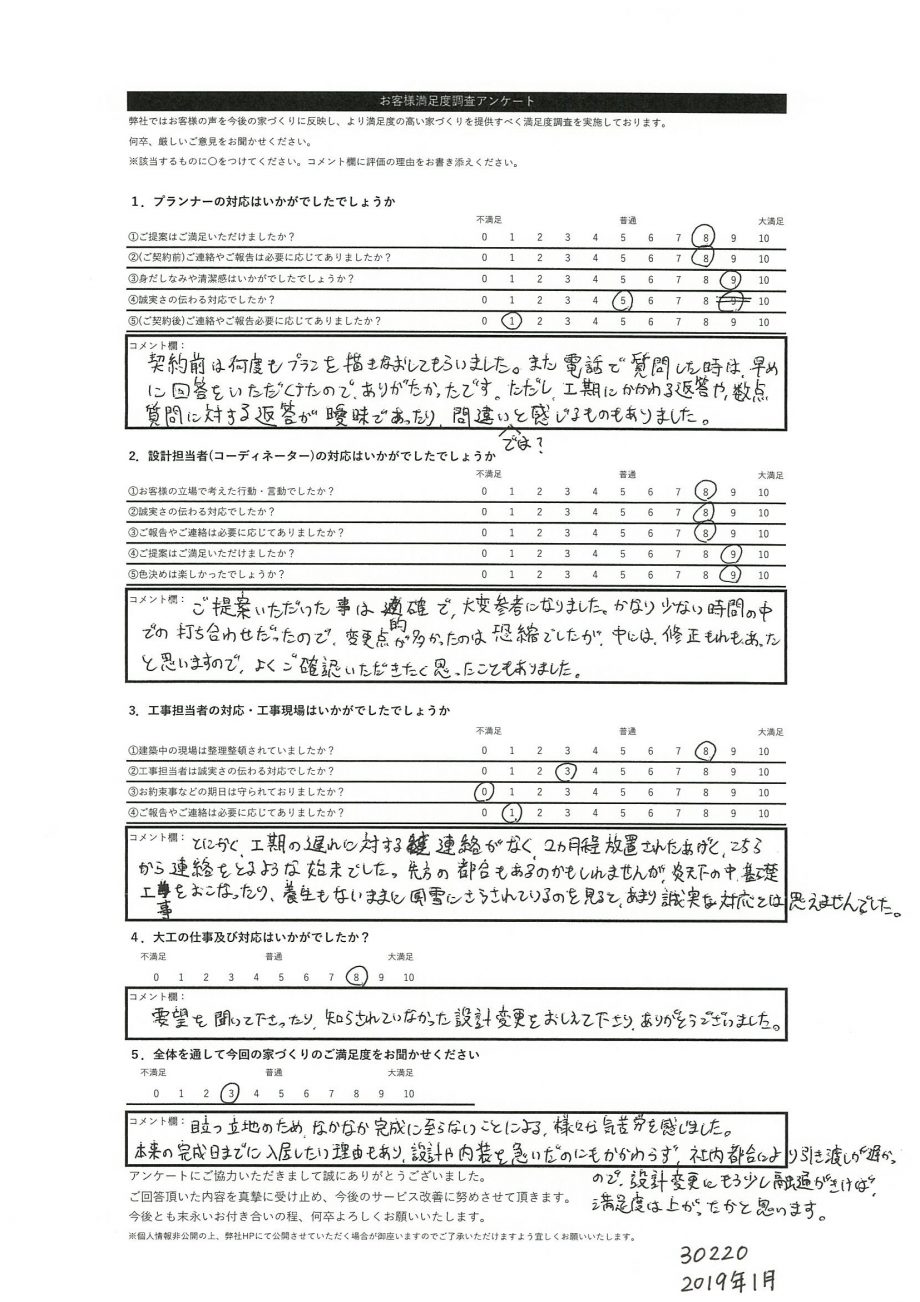 お客様満足度調査アンケート
弊社ではお客様の声を今後の家づくりに反映し、より満足度の高い家づくりを提供すべく満足度調査を実施しております。
何卒、厳しいご意見をお聞かせください。
※該当するものに〇をつけてください。コメント欄に評価の理由をお書き添えください。
1．プランナーの対応はいかがでしたでしょうか
不満足 普通 大満足
①ご提案はご満足いただけましたか？ 0 1 2 3 4 5 6 7 8 9 10
②(ご契約前)ご連絡やご報告は必要に応じてありましたか？ 0 1 2 3 4 5 6 7 8 9 10
③身だしなみや清潔感はいかがでしたでしょうか？ 0 1 2 3 4 5 6 7 8 9 10
④誠実さの伝わる対応でしたか？ 0 1 2 3 4 5 6 7 8 9 10
⑤(ご契約後)ご連絡やご報告必要に応じてありましたか？ 0 1 2 3 4 5 6 7 8 9 10
コメント欄：
契約前は何度もプランを描きなおしてもらいました。また電話で質問した時は、早め
に回答をいただくけたので、ありがたかったです。ただし、工期にかかわる返答や、数点
質問に対する返答が曖昧であったり、間違いと感じるものもありました。
では？
2．設計担当者(コーディネーター)の対応はいかがでしたでしょうか
不満足 普通 大満足
①お客様の立場で考えた行動・言動でしたか？ 0 1 2 3 4 5 6 7 8 9 10
②誠実さの伝わる対応でしたか？ 0 1 2 3 4 5 6 7 8 9 10
③ご報告やご連絡は必要に応じてありましたか？ 0 1 2 3 4 5 6 7 8 9 10
④ご提案はご満足いただけましたか？ 0 1 2 3 4 5 6 7 8 9 10
⑤色決めは楽しかったでしょうか？ 0 1 2 3 4 5 6 7 8 9 10
コメント欄：
ご提案いただいた事は 確で、大変参考になりました。かなり少ない時間の中
的
での打ち合わせだったので、変更点が多かったのは恐縮でしたが、中には、修正もれもあった
と思いますので、よくご確認いただきたく思ったこともありました。
3．工事担当者の対応・工事現場はいかがでしたでしょうか
不満足 普通 大満足
①建築中の現場は整理整頓されていましたか？ 0 1 2 3 4 5 6 7 8 9 10
②工事担当者は誠実さの伝わる対応でしたか？ 0 1 2 3 4 5 6 7 8 9 10
③お約束事などの期日は守られておりましたか？ 0 1 2 3 4 5 6 7 8 9 10
④ご報告やご連絡は必要に応じてありましたか？ 0 1 2 3 4 5 6 7 8 9 10
コメント欄：
とにかく、工期の遅れに対する 連絡がなく、2カ月程放置されたあげく、こちら
から連絡をとるような始末でした。先方の都合もあるのかもしれませんが、炎天下の中、基礎
工 をおこなったり、養生もないままに風雪にさらされているのを見ると、あまり誠実な対応とは思えませんでした。
事
4．大工の仕事及び対応はいかがでしたか？
不満足 普通 大満足
0 1 2 3 4 5 6 7 8 9 10
コメント欄：
要望を聞いて下さったり、知らされていなかった設計変更をおしえて下さり、ありがとうございました。
5．全体を通して今回の家づくりのご満足度をお聞かせください
不満足 普通 大満足
0 1 2 3 4 5 6 7 8 9 10
コメント欄：
目立つ立地のため、なかなか完成に至らないことによる、様々な気苦労を感じました。
本来の完成日までに入居したい理由もあり、設計や内装を急いだのにもかかわらず、社内都合により引き渡しが遅かった
ので、設計変更にもう少し融通がきけば、
満足度は上がったかと思います。
アンケートにご協力いただきまして誠にありがとうございました。
ご回答頂いた内容を真摯に受け止め、今後のサービス改善に努めさせて頂きます。
今後とも末永いお付き合いの程、何卒よろしくお願いいたします。
※個人情報非公開の上、弊社HPにて公開させていただく場合が御座いますのでご了承いただけますよう宜しくお願いいたします。
30220
2019年1月